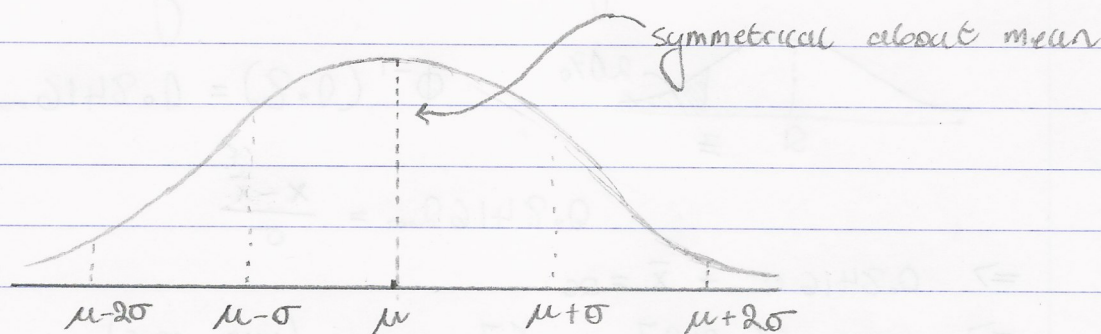 symmetrical about mean
μ-2σ μ-σ μ μ+σ μ+2σ